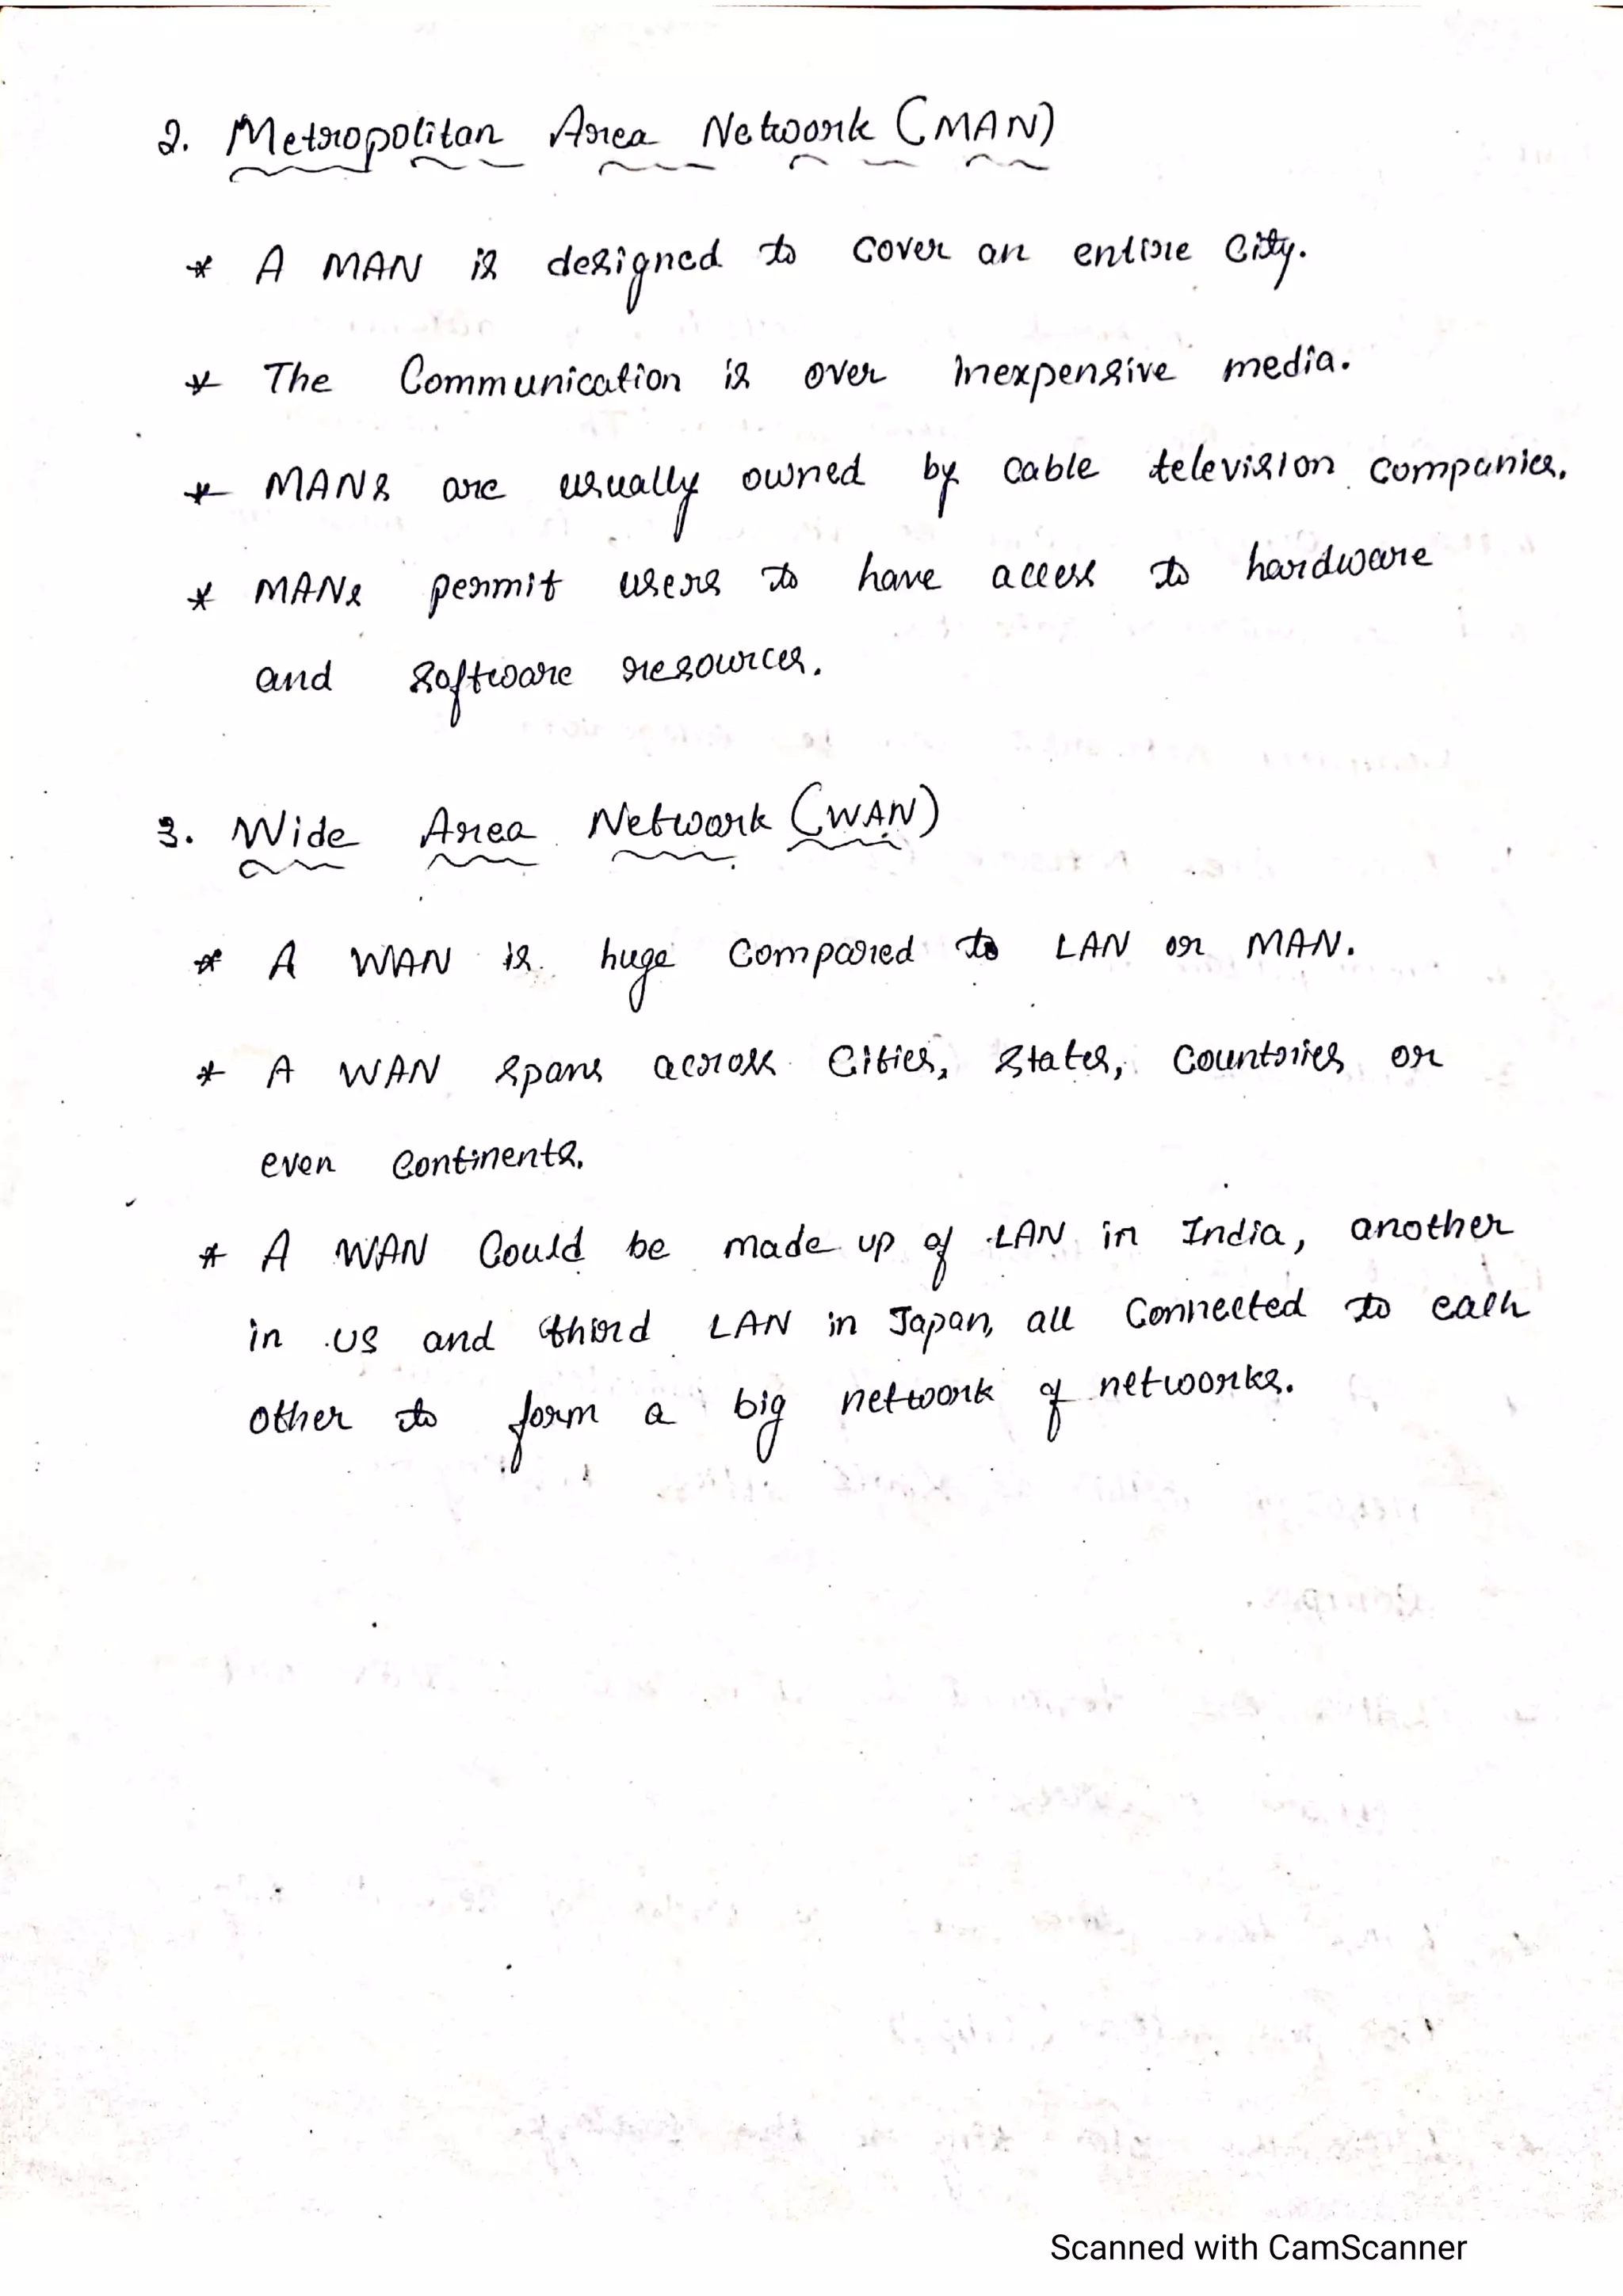 2. Metropolitan Area Network (MAN)
* A MAN is designed to cover an entire City.
* The Communication is over Inexpensive media.
* MANs are usually owned by cable television companies.
* MANs permit users to have access to hardware
and software resources.
3. Wide Area Network (WAN)
* A WAN is huge Compared to LAN or MAN.
* A WAN spans across Cities, states, Countries or
even continents.
* A WAN Could be made up of LAN in India, another
in US and third LAN in Japan, all Connected to each
other to form a big network of networks.
Scanned with CamScanner